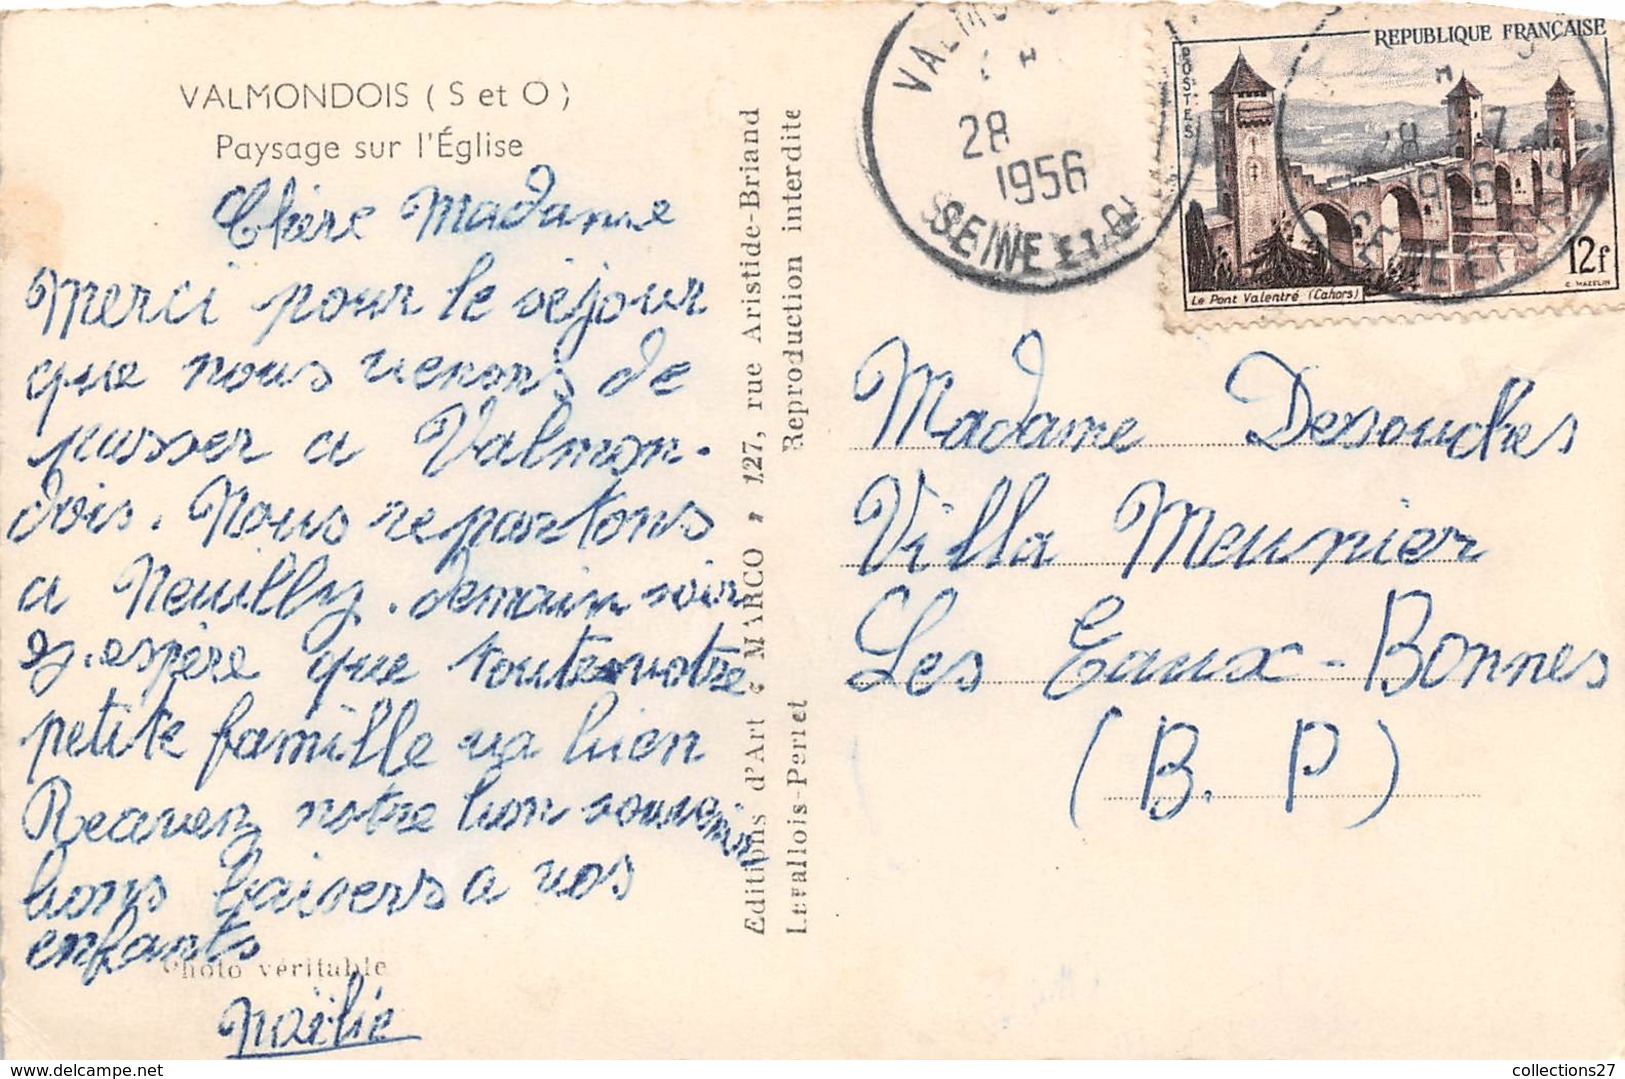 VALMONDOIS (S et O)
Paysage sur l'Église
Chère Madame
Merci pour le séjour
que nous venons de
passer a Valmon-
dois. Nous repartons
a Neuilly. demain soir
j.espère que toute votre
petite famille va bien
Recevez notre bon souvenir
bons baisers a vos
enfants
Photo véritable
Noëlie
Editions d'Art MARCO, 127, rue Aristide-Briand
Levallois-Perret Reproduction interdite
28
1956
SEINE ET O
REPUBLIQUE FRANÇAISE
POSTES
12f
Le Pont Valentré (Cahors)
C. MAZELIN
Madame Desouches
Villa Meunier
Les Eaux-Bonnes
(B. P)
collections27